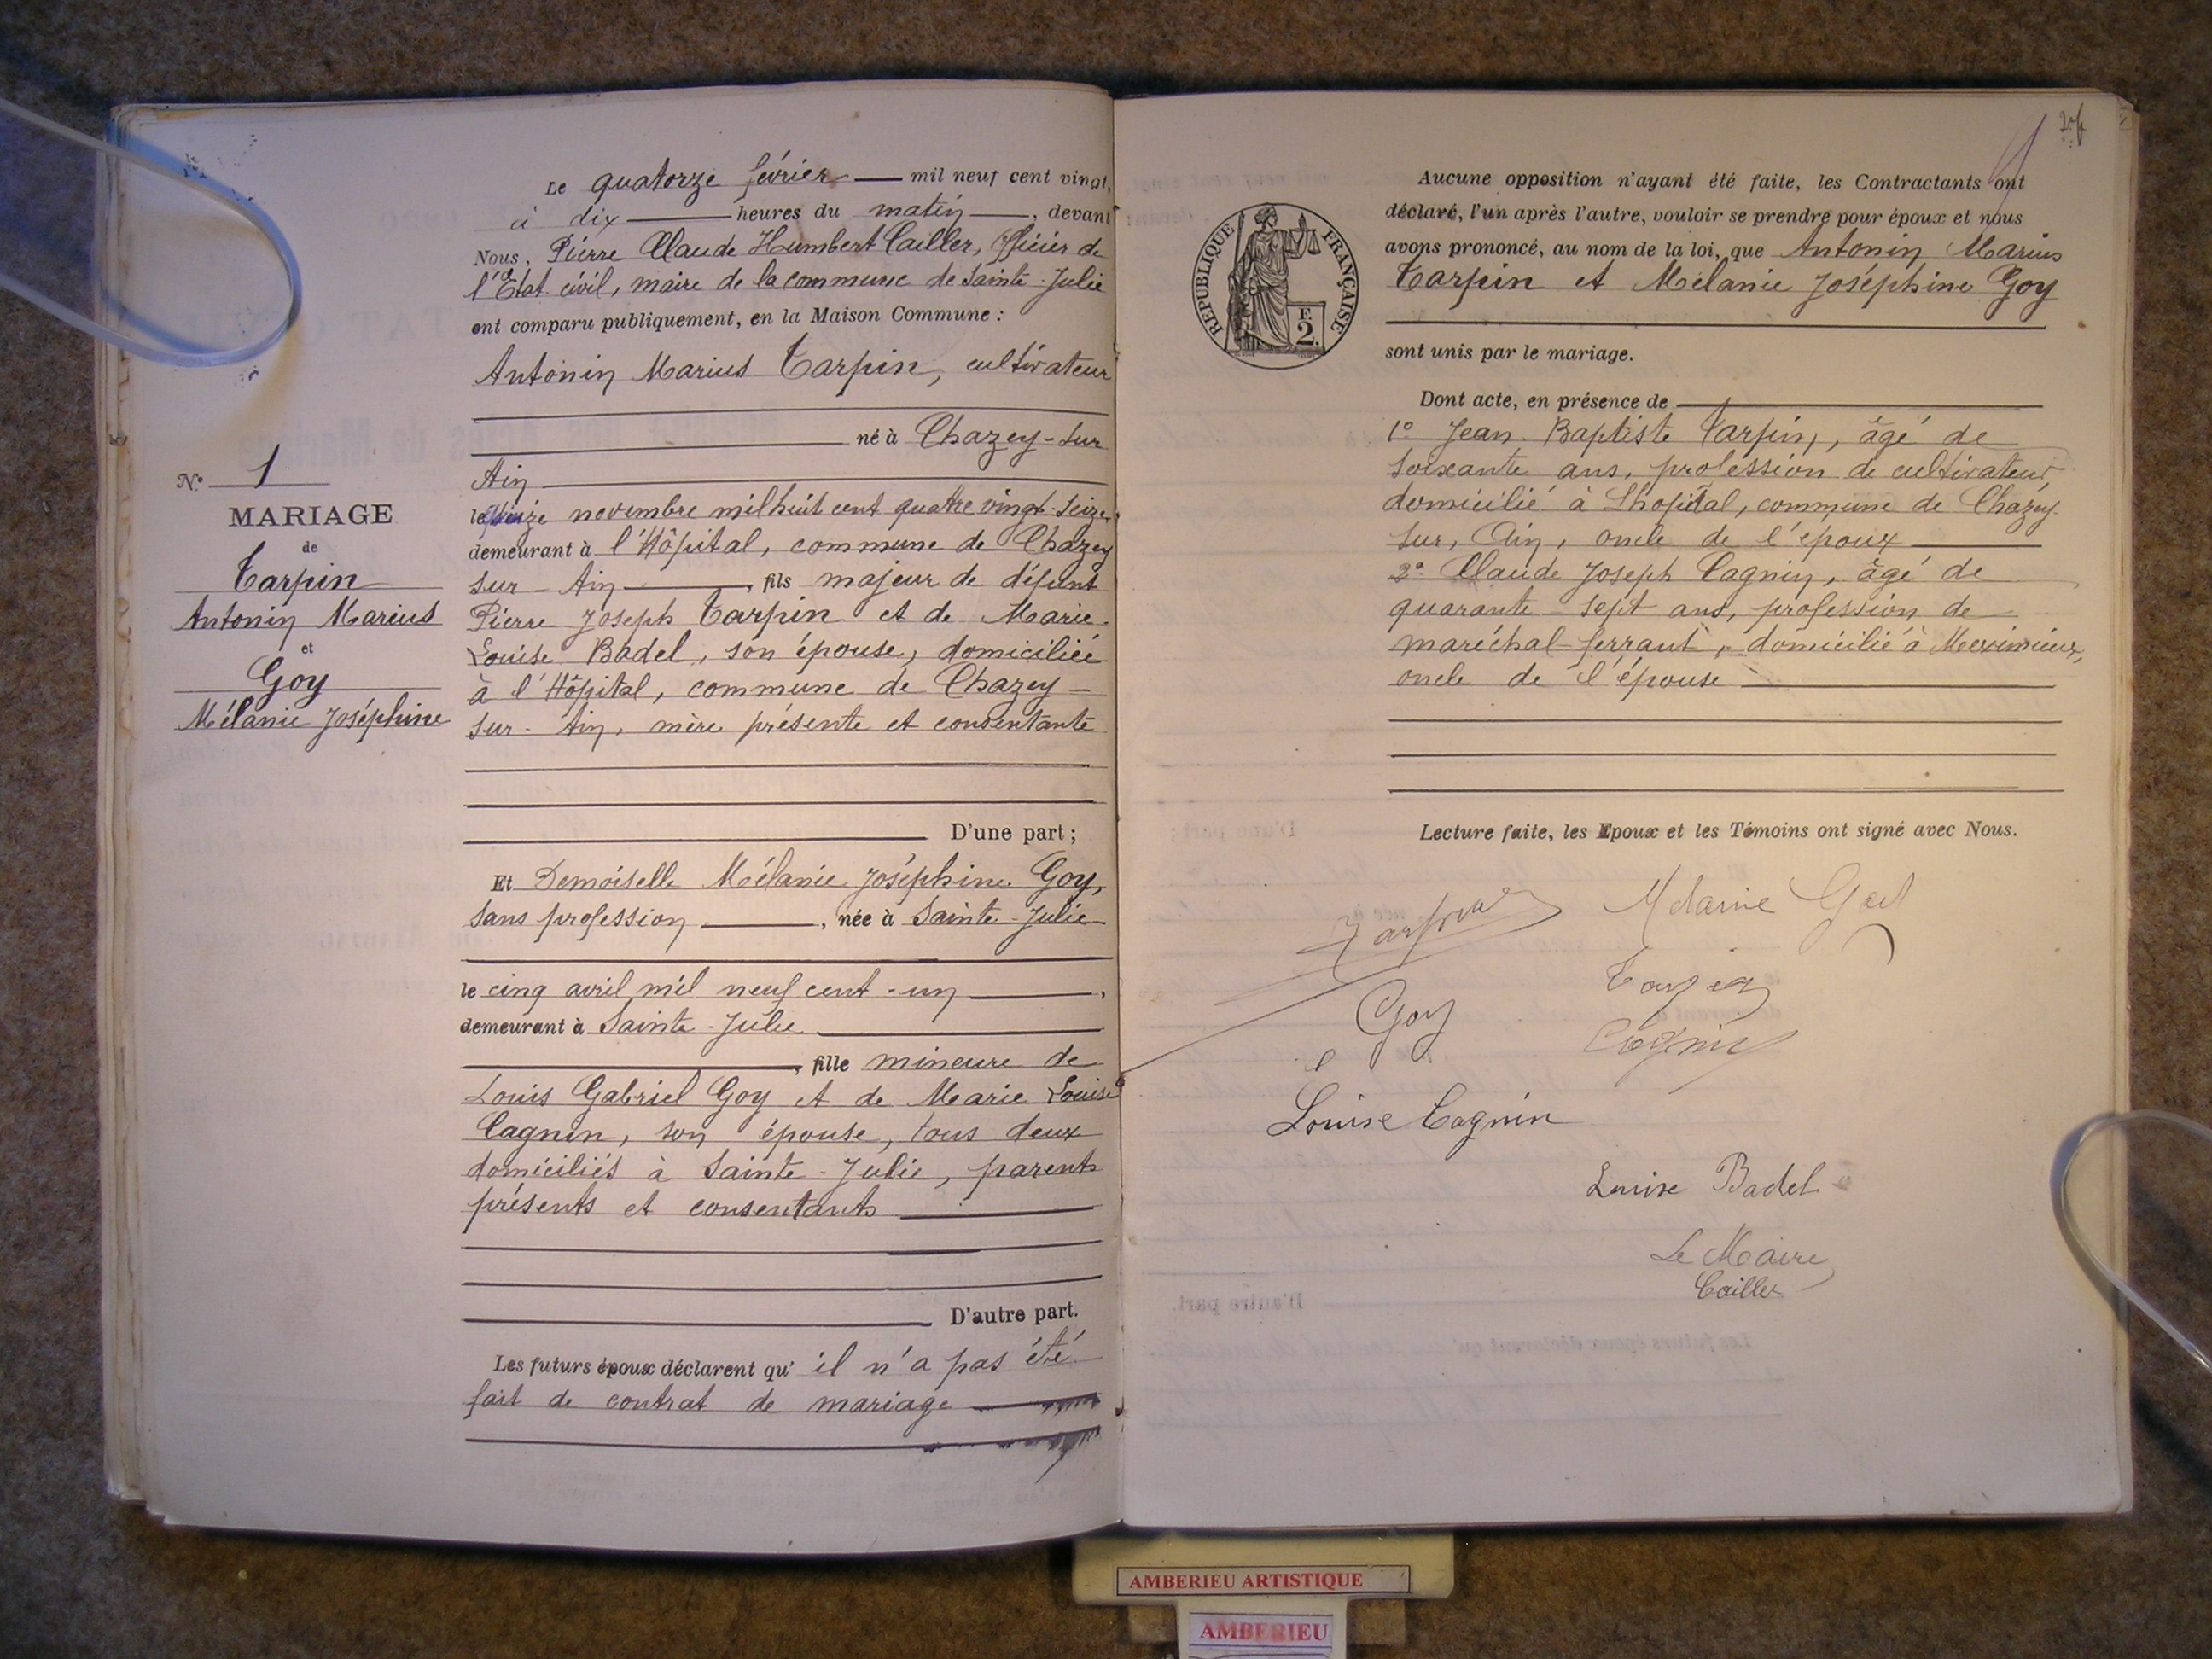 Le quatorze février mil neuf cent vingt,
à dix heures du matin, devant
Nous, Pierre Claude Humbert Cailler, Officier de
l'Etat civil, maire de la commune de Sainte-Julie
ont comparu publiquement, en la Maison Commune :
Antonin Marius Tarpin, cultivateur
né à Chazey-sur
Ain
le novembre mil huit cent quatre vingt-seize,
demeurant à l'Hôpital, commune de Chazey
sur-Ain, fils majeur de défunt
Pierre Joseph Tarpin et de Marie-
Louise Badel, son épouse, domiciliée
à l'Hôpital, commune de Chazey-
sur-Ain, mère présente et consentante
D'une part ;
Et Demoiselle Mélanie Joséphine Goy,
sans profession, née à Sainte-Julie
le cinq avril mil neuf cent-un,
demeurant à Sainte-Julie
, fille mineure de
Louis Gabriel Goy et de Marie Louise
Cagnin, son épouse, tous deux
domiciliés à Sainte-Julie, parents
présents et consentants
D'autre part.
Les futurs époux déclarent qu'il n'a pas été
fait de contrat de mariage
N° 1
MARIAGE
de
Tarpin
Antonin Marius
et
Goy
Mélanie Joséphine
REPUBLIQUE FRANÇAISE
F.
2.
Aucune opposition n'ayant été faite, les Contractants ont
déclaré, l'un après l'autre, vouloir se prendre pour époux et nous
avons prononcé, au nom de la loi, que Antonin Marius
Tarpin et Mélanie Joséphine Goy
sont unis par le mariage.
Dont acte, en présence de
1° Jean-Baptiste Tarpin, âgé de
soixante ans, profession de cultivateur,
domicilié à Lhopital, commune de Chazey-
sur, Ain, oncle de l'époux
2° Claude Joseph Cagnin, âgé de
quarante sept ans, profession de
maréchal-ferrant, domicilié à Meximieux,
oncle de l'épouse
Lecture faite, les Epoux et les Témoins ont signé avec Nous.
Tarpin
Goy
Tarpin
Cagnin
Louise Cagnin
Louise Badel
Le Maire
Cailler
AMBERIEU ARTISTIQUE
AMBERIEU